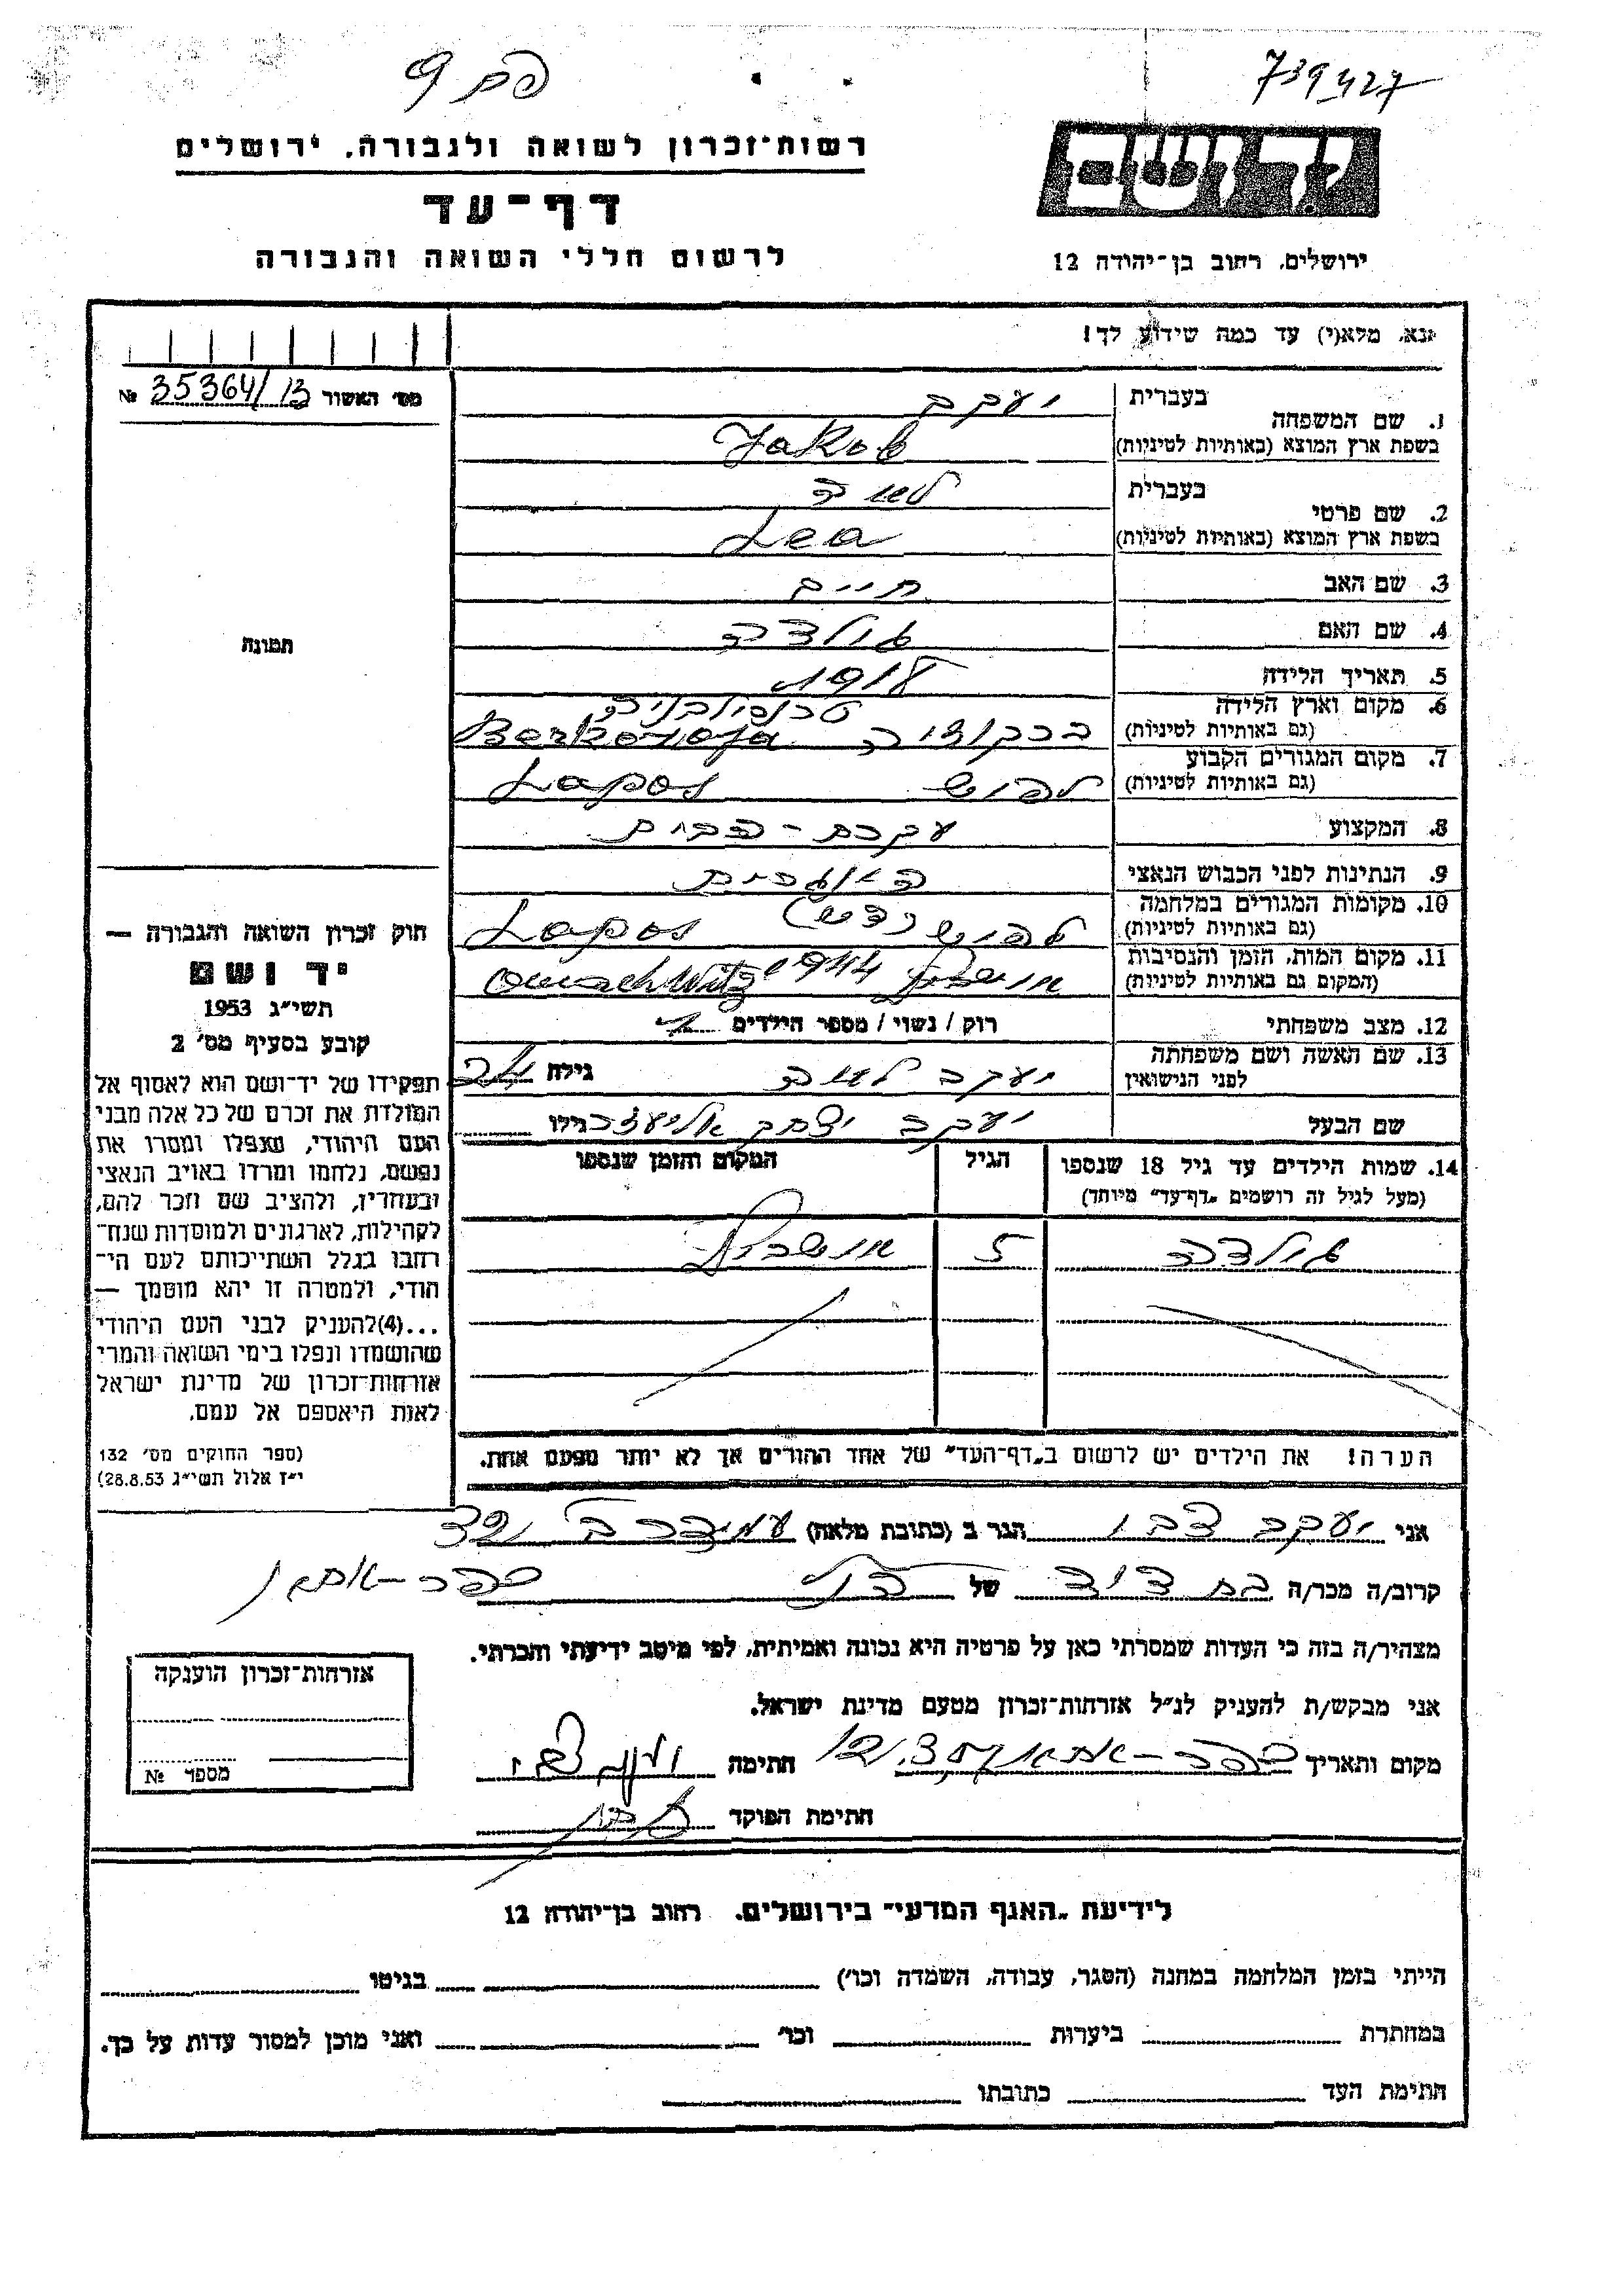 739427
רשות־זכרון לשואה ולגבורה. ירושלים
דף־עד
לרשום חללי השואה והגבורה
ירושלים, רחוב בן־יהודה 12
נא, מלא(י) עד כמה שידוע לך!
מס׳ האשור 35364/13 №
1. שם המשפחה
בעברית יעקב
בשפת ארץ המוצא (באותיות לטיניות) Jakob
2. שם פרטי
בעברית לאה
בשפת ארץ המוצא (באותיות לטיניות) Lea
3. שם האב חיים
4. שם האם גולדה
5. תאריך הלידה 1918
6. מקום וארץ הלידה טרנסילבניה
(גם באותיות לטיניות)
7. מקום המגורים הקבוע לפוש Lapos
(גם באותיות לטיניות)
8. המקצוע עקרת־הבית
9. הנתינות לפני הכבוש הנאצי
10. מקומות המגורים במלחמה לפוש Lapos
(גם באותיות לטיניות)
11. מקום המות, הזמן והנסיבות אושביץ 1944
(המקום גם באותיות לטיניות)
12. מצב משפחתי רוק / נשוי / מספר הילדים 1
13. שם האשה ושם משפחתה
לפני הנישואין יעקב לאה גילה 24
שם הבעל יעקב יצחק אליעזר גילו
14. שמות הילדים עד גיל 18 שנספו
(מעל לגיל זה רושמים „דף־עד״ מיוחד)
הגיל
המקום והזמן שנספו
גולדה 5 אושביץ
הערה! את הילדים יש לרשום ב„דף־העד״ של אחד ההורים אך לא יותר מפעם אחת.
תמונה
חוק זכרון השואה והגבורה —
יד ושם
תשי״ג 1953
קובע בסעיף מס׳ 2
תפקידו של יד־ושם הוא לאסוף אל
המולדת את זכרם של כל אלה מבני
העם היהודי, שנפלו ומסרו את
נפשם, נלחמו ומרדו באויב הנאצי
ובעוזריו, ולהציב שם וזכר להם,
לקהילות, לארגונים ולמוסדות שנח־
רבו בגלל השתייכותם לעם הי־
הודי, ולמטרה זו יהא מוסמך —
...(4)להעניק לבני העם היהודי
שהושמדו ונפלו בימי השואה והמרי
אזרחות־זכרון של מדינת ישראל
לאות היאספם אל עמם.
(ספר החוקים מס׳ 132
י״ז אלול תשי״ג 28.8.53)
אני יעקב צבי הגר ב (כתובת מלאה)
קרוב/ה מכר/ה בת דוד של
מצהיר/ה בזה כי העדות שמסרתי כאן על פרטיה היא נכונה ואמיתית, לפי מיטב ידיעתי והכרתי.
אני מבקש/ת להעניק לנ״ל אזרחות־זכרון מטעם מדינת ישראל.
מקום ותאריך חתימה
חתימת הפוקד
אזרחות־זכרון הוענקה
מספר №
לידיעת „האגף המדעי״ בירושלים. רחוב בן־יהודה 12
הייתי בזמן המלחמה במחנה (הסגר, עבודה, השמדה וכו׳) בגיטו
במחתרת ביערות וכו׳ ואני מוכן למסור עדות על כך.
חתימת העד כתובתו